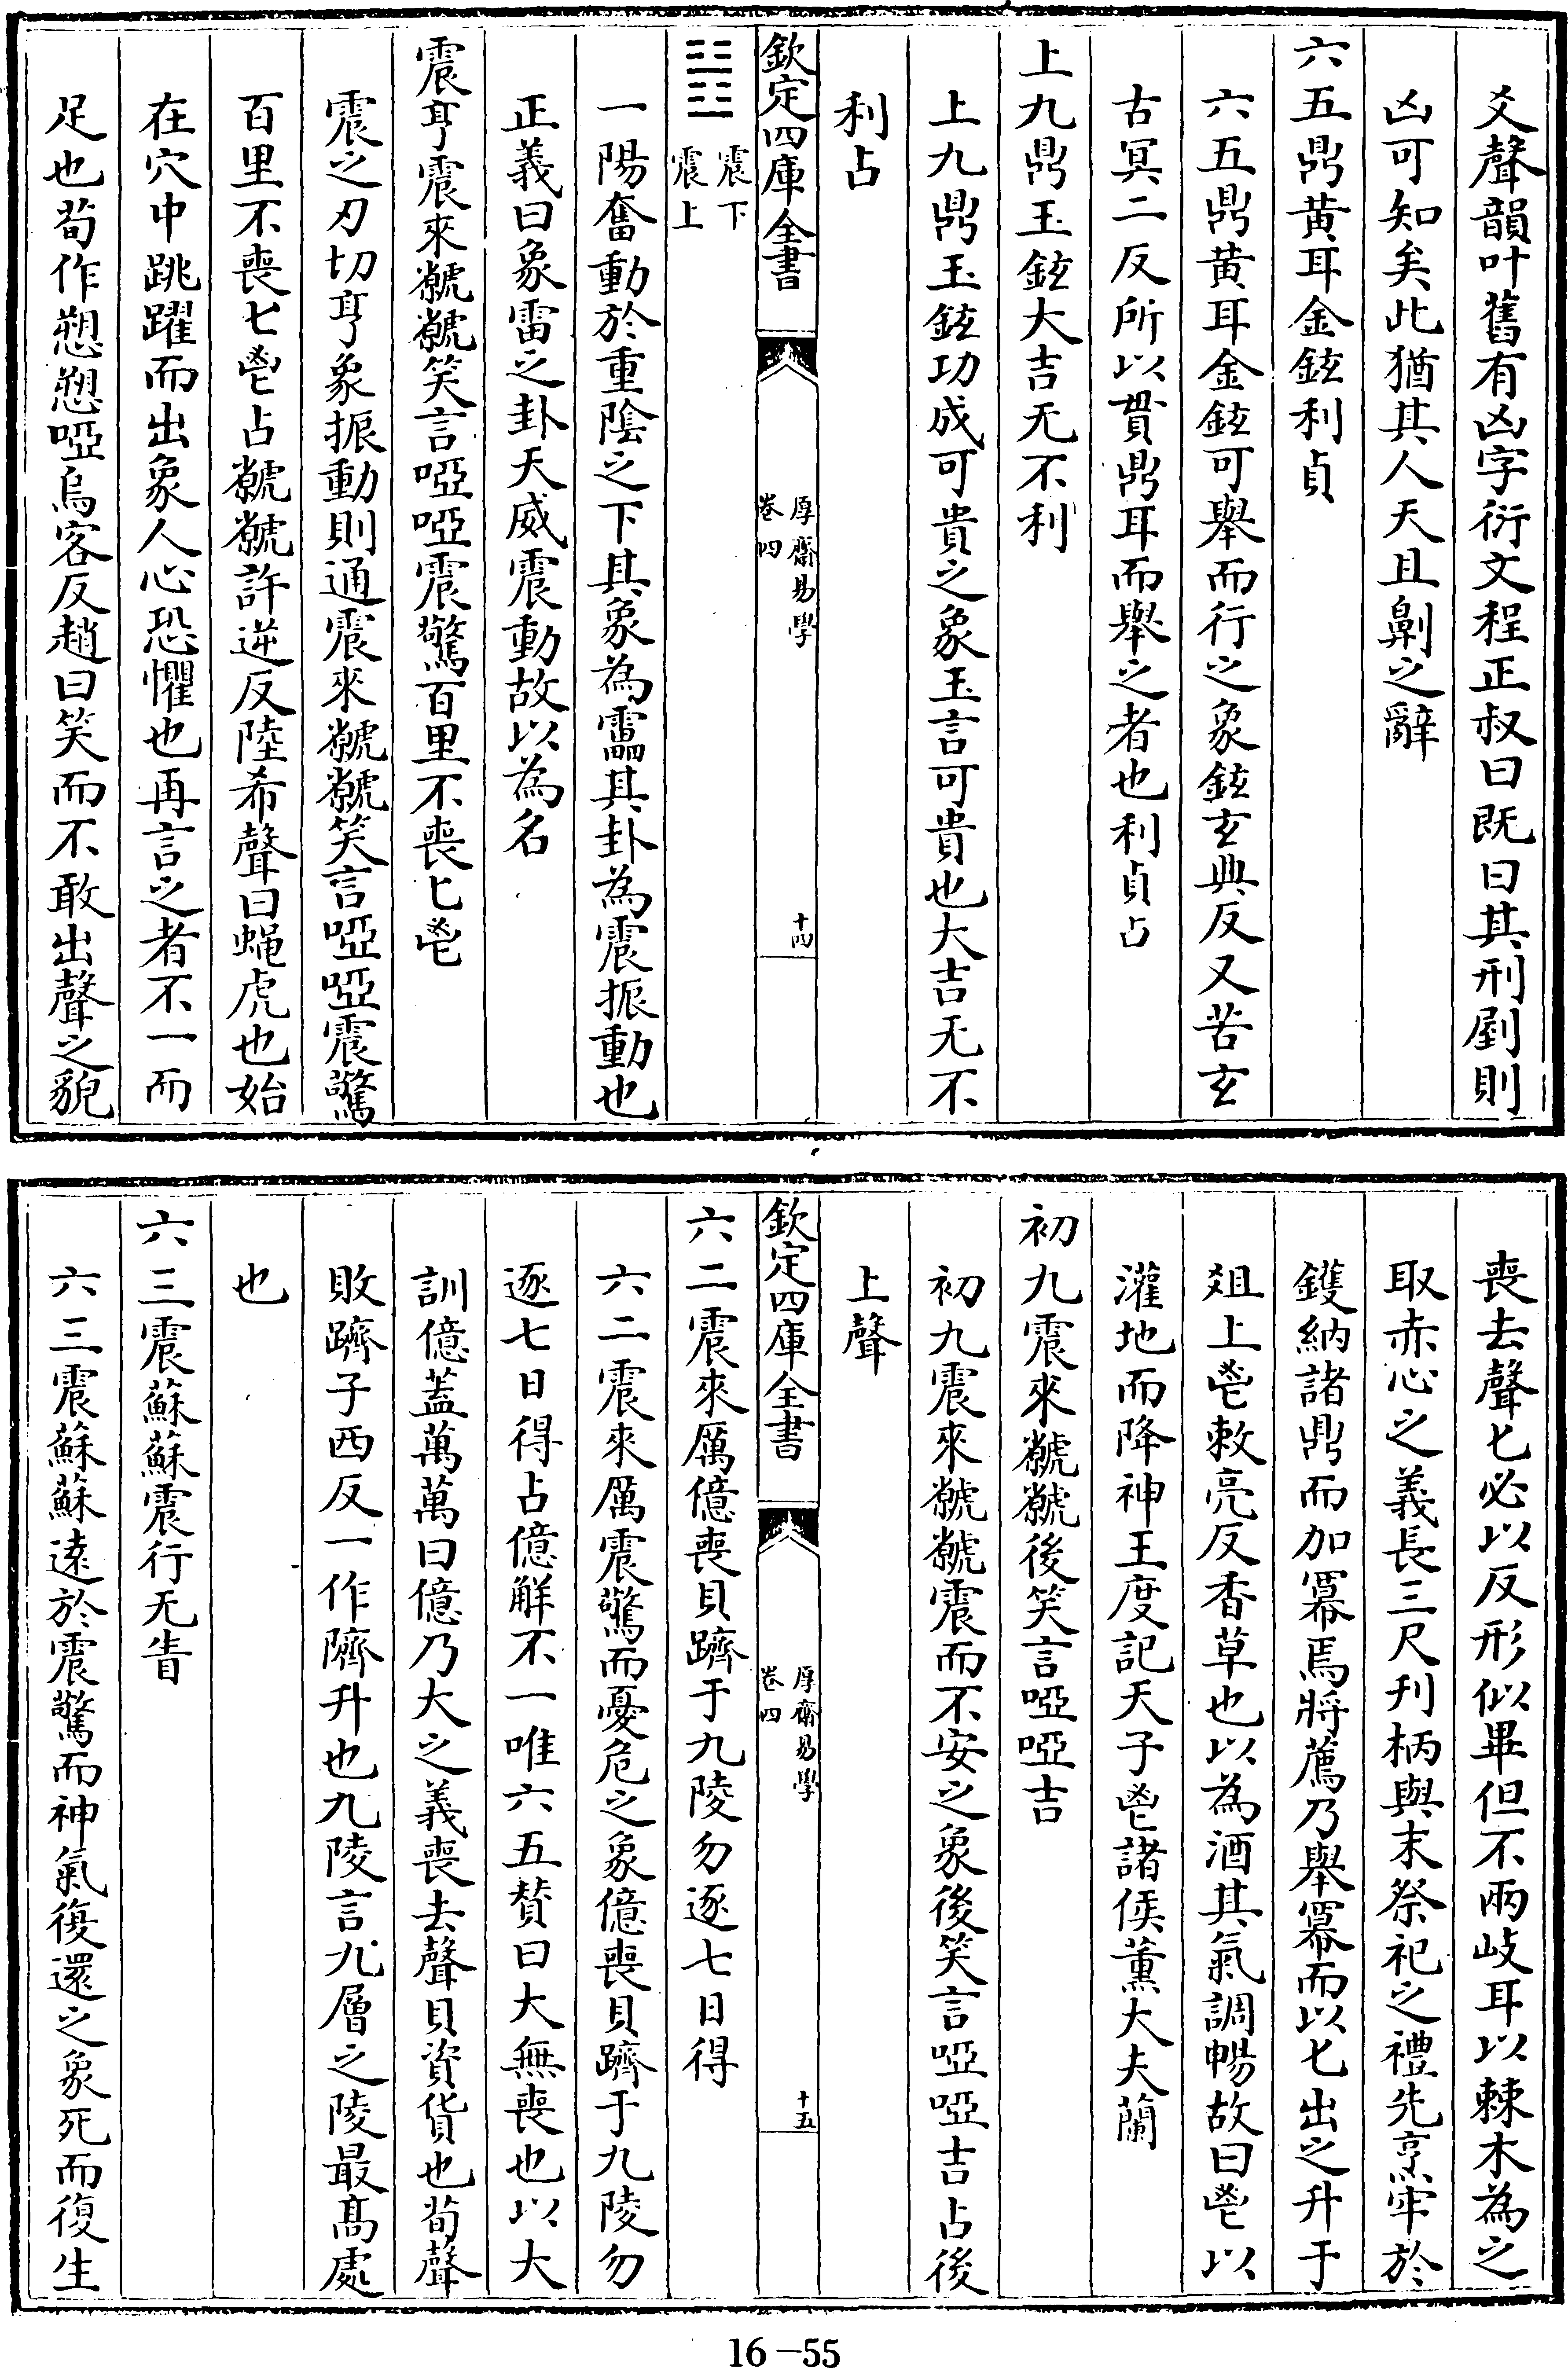 爻聲韻叶舊有凶字衍文程正叔曰既曰其刑剭則
凶可知矣此猶其人天且劓之辭
六五鼎黄耳金鉉利貞
六五鼎黄耳金鉉可舉而行之象鉉玄典反又苦玄
古冥二反所以貫鼎耳而舉之者也利貞占
上九鼎玉鉉大吉无不利
上九鼎玉鉉功成可貴之象玉言可貴也大吉无不
利占
欽定四庫全書
厚齋易學
卷四
十四
䷲
震下
震上
一陽奮動於重陰之下其象為靁其卦為震振動也
正義曰象雷之卦天威震動故以為名
震亨震來虩虩笑言啞啞震驚百里不喪匕鬯
震之刃切亨象振動則通震來虩虩笑言啞啞震驚
百里不喪匕鬯占虩虩許逆反陸希聲曰蝇虎也始
在穴中跳躍而出象人心恐懼也再言之者不一而
足也荀作愬愬啞烏客反趙曰笑而不敢出聲之貌
喪去聲匕必以反形似畢但不兩岐耳以棘木為之
取赤心之義長三尺刋柄與末祭祀之禮先烹牢於
鑊納諸鼎而加冪焉將薦乃舉冪而以匕出之升于
俎上鬯敕亮反香草也以為酒其氣調暢故曰鬯以
灌地而降神王度記天子鬯諸侯薰大夫蘭
初九震來虩虩後笑言啞啞吉
初九震來虩虩震而不安之象後笑言啞啞吉占後
上聲
欽定四庫全書
厚齋易學
卷四
十五
六二震來厲億喪貝躋于九陵勿逐七日得
六二震來厲震驚而憂危之象億喪貝躋于九陵勿
逐七日得占億解不一唯六五賛曰大無喪也以大
訓億蓋萬萬曰億乃大之義喪去聲貝資貨也荀聲
敗躋子西反一作隮升也九陵言九層之陵最髙處
也
六三震蘇蘇震行无眚
六三震蘇蘇逺於震驚而神氣復還之象死而復生
16-55